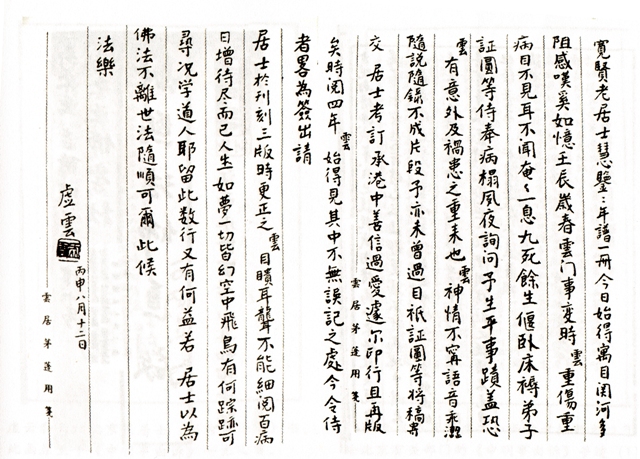 寬賢老居士慧鑒：年譜一冊今日始得寓目関河多
阻感嘆奚如憶壬辰歲春雲门事变時雲重傷重
病目不見耳不聞奄々一息九死餘生偃卧床褥弟子
証圓等侍奉病榻夙夜詢问予生平事蹟盖恐
雲有意外及禍患之重来也雲神情不寗語音乖澀
隨説隨錄不成片段予亦未曾過目祇証圓等将稿寄
交 居士考訂承港中善信過愛遽尔印行且再版
矣時閲四年雲始得見其中不無誤記之處今令侍
者畧為簽出請
居士於刋刻三版時更正之雲目瞶耳聾不能細閲百病
日增待尽而已人生如夢一切皆幻空中飛鳥有何踪跡可
尋况学道人耶留此数行又有何益若 居士以為
佛法不離世法隨順可爾此候
法樂
虛雲
丙申八月十二日
雲居茅蓬用箋
雲居茅蓬用箋